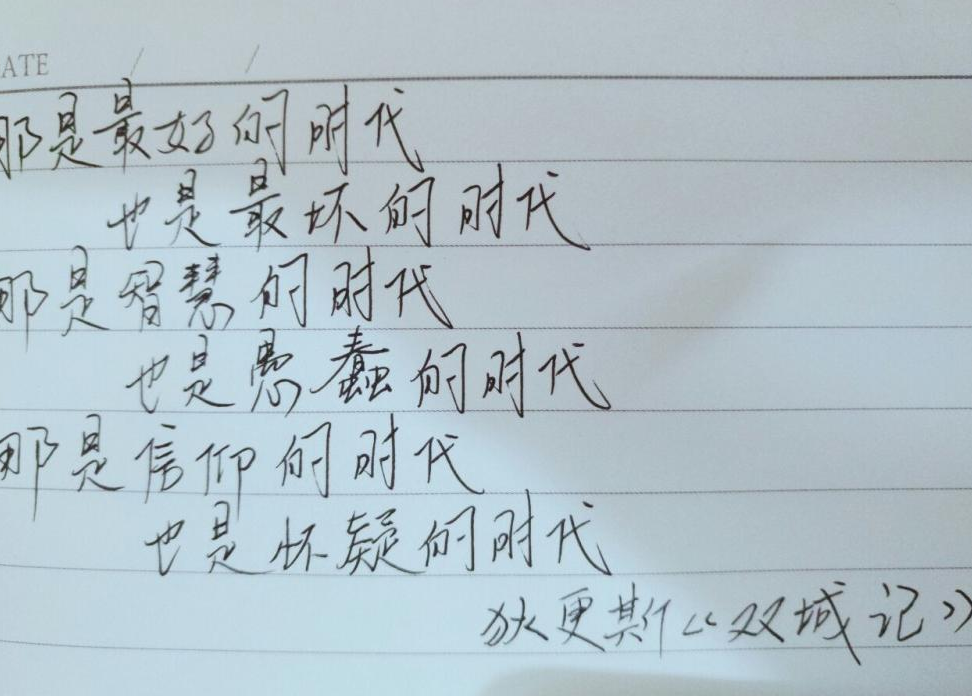 ATE / /
那是最好的时代
也是最坏的时代
那是智慧的时代
也是愚蠢的时代
那是信仰的时代
也是怀疑的时代
狄更斯《双城记》